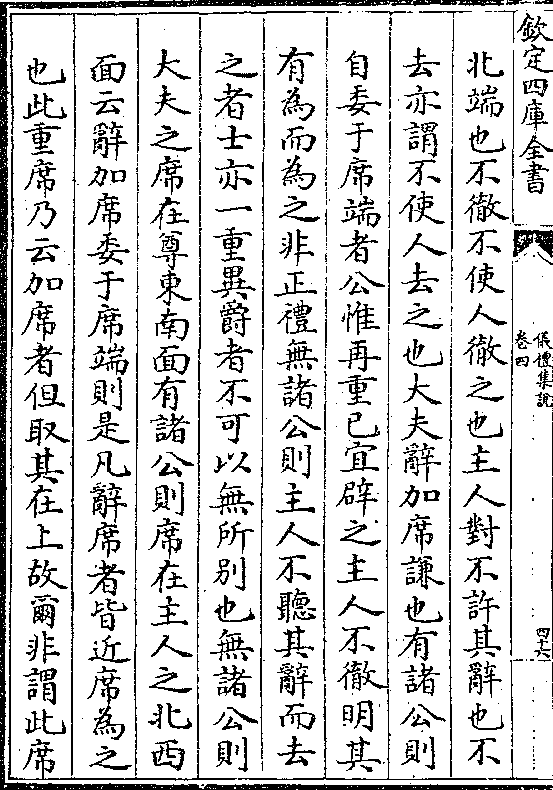 欽定四庫全書
儀禮集說
卷四
四六
北端也不徹不使人徹之也主人對不許其辭也不
去亦謂不使人去之也大夫辭加席謙也有諸公則
自委于席端者公惟再重已宜辟之主人不徹明其
有為而為之非正禮無諸公則主人不聽其辭而去
之者士亦一重異爵者不可以無所别也無諸公則
大夫之席在尊東南面有諸公則席在主人之北西
面云辭加席委于席端則是凡辭席者皆近席為之
也此重席乃云加席者但取其在上故爾非謂此席